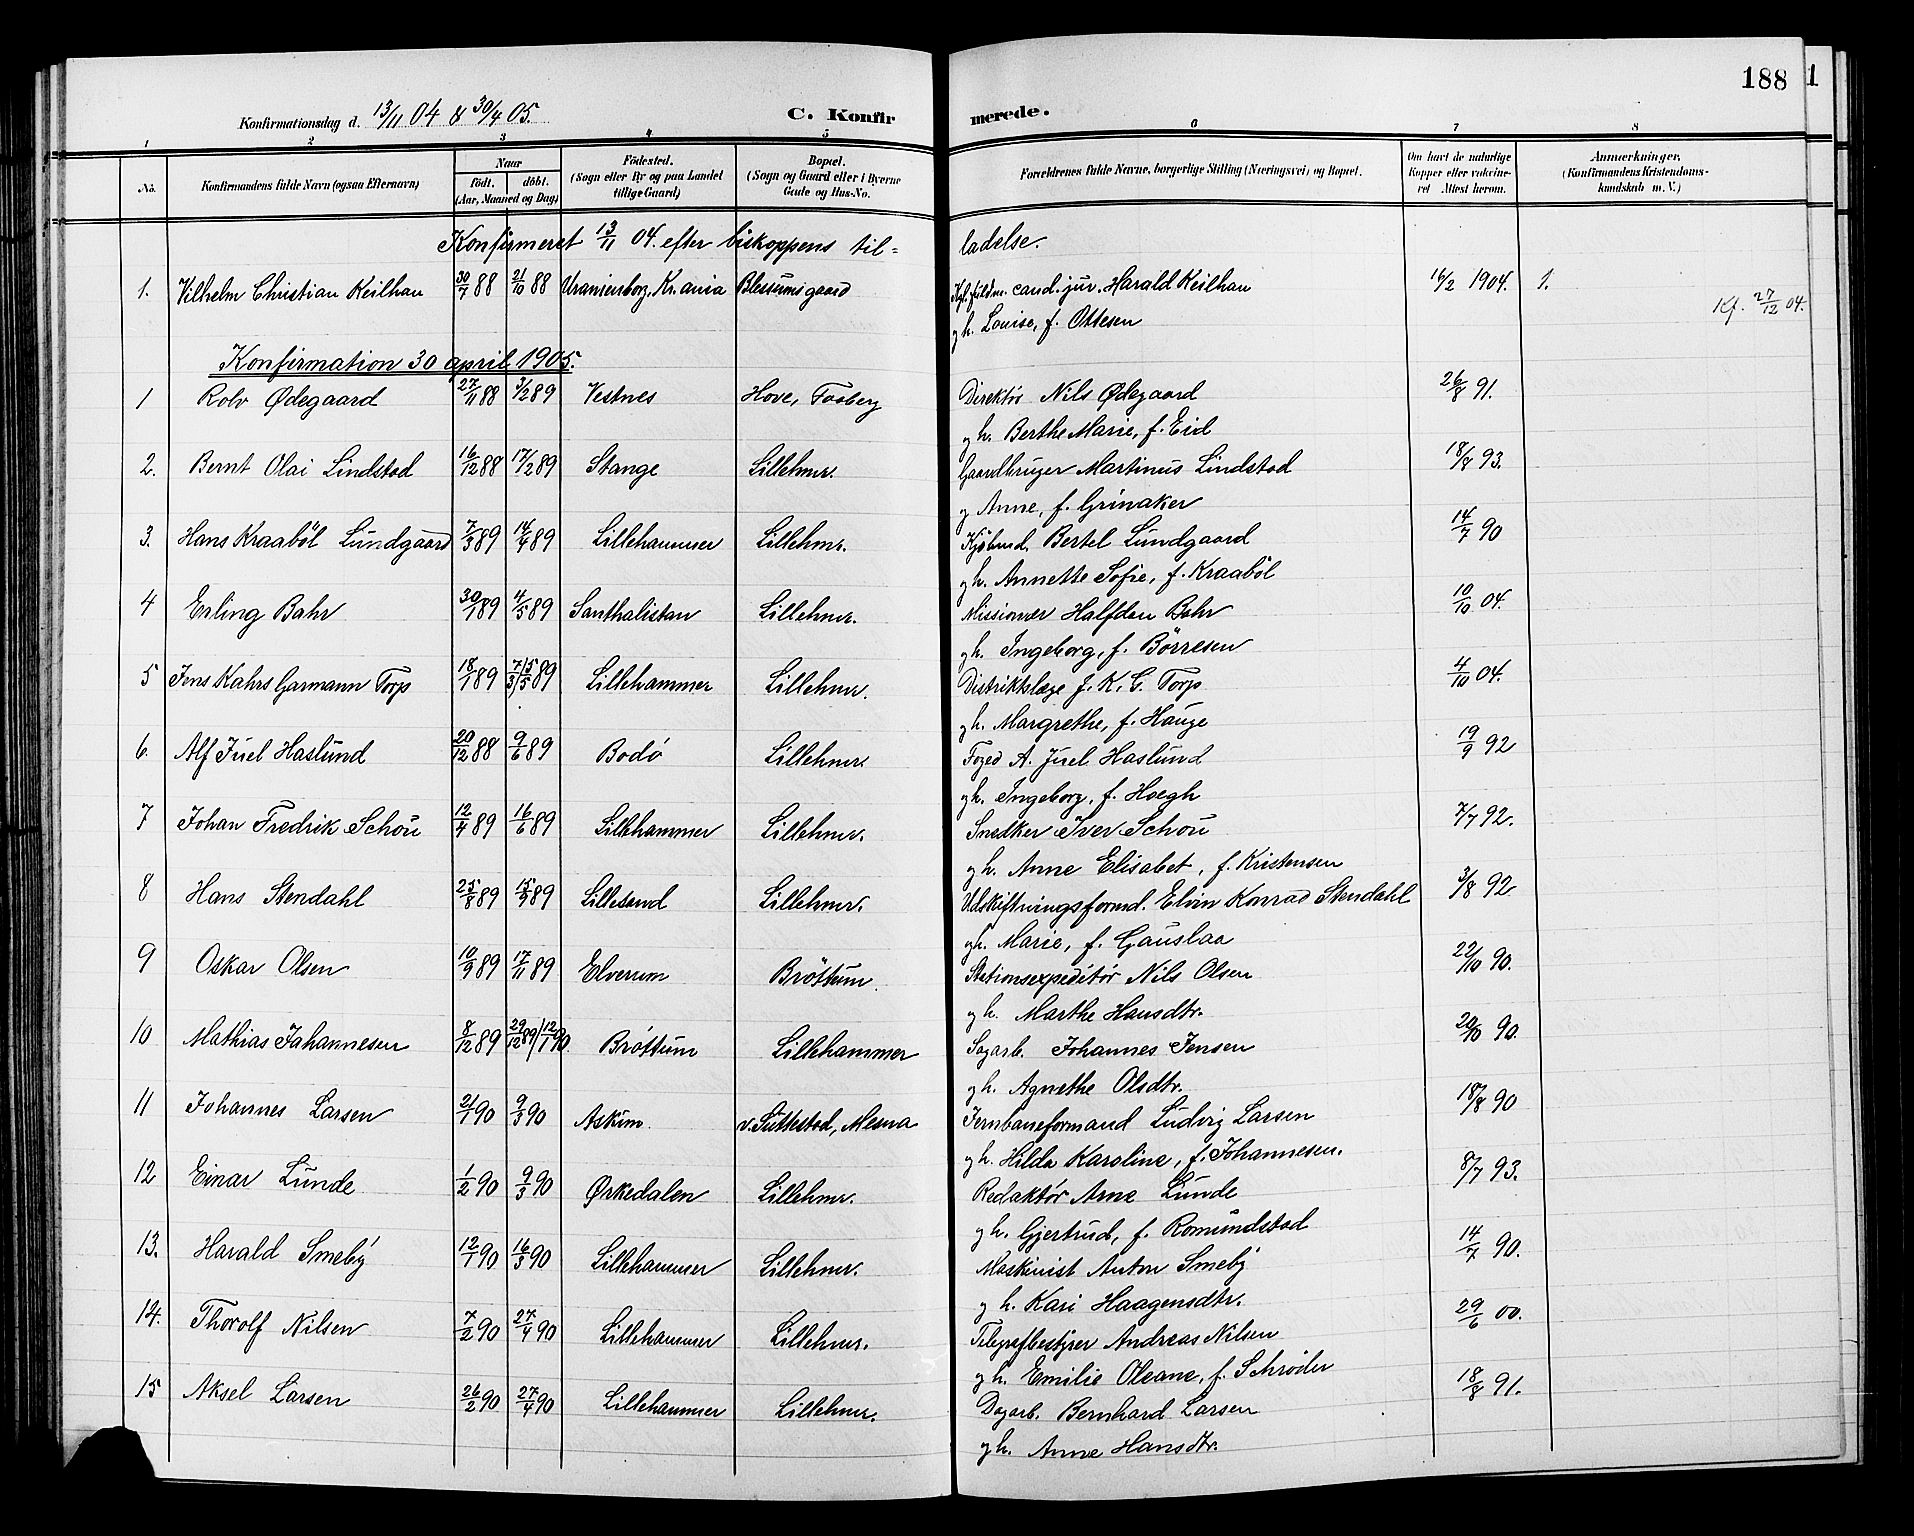 188
1
Konfirmationsdag d. 13/11 04 & 30/4 05.
C. Konfirmerede.
1 2 3 4 5 6 7 8
No.
Konfirmandens fulde Navn (ogsaa Efternavn)
Naar
født. døbt.
(Aar, Maaned og Dag)
Fødested.
(Sogn eller By og paa Landet
tillige Gaard)
Bopæl.
(Sogn og Gaard eller i Byerne
Gade og Hus-No.
Forældrenes fulde Navne, borgerlige Stilling (Næringsvei) og Bopæl.
Om havt de naturlige
Kopper eller vakcine-
ret Attest herom.
Anmærkninger,
(Konfirmandens Kristendoms-
kundskab m. V.)
Konfirmeret 13/11 04. efter biskoppens til= ladelse.
1. Vilhelm Christian Keilhau 30/7 88 21/10 88 Uranienborg, Kr.ania Blessumsgaard Kgl. fuldm. cand. jur. Harald Keilhau 16/2 1904. 1.
gh. Louise, f. Ottesen Kf. 27/12 04.
Konfirmation 30 april 1905.
1 Rolv Ødegaard 27/11 88 3/2 89 Vestnes Hove, Faaberg Direktør Nils Ødegaard 26/8 91.
gh. Berthe Marie, f. Eid
2. Bernt Olai Lindstad 16/12 88 17/2 89 Stange Lillehmr. Gaardbruger Martinus Lindstad 18/8 93.
g Anne, f. Grinaker
3. Hans Kraabøl Lundgaard 7/3 89 14/4 89 Lillehammer Lillehmr. Kjøbmd. Bertel Lundgaard 14/7 90
gh. Annette Sofie, f. Kraabøl
4 Erling Bahr 30/1 89 4/5 89 Santhalistan Lillehmr. Missionær Halfdan Bahr 10/10 04.
gh. Ingeborg, f. Børresen
5 Jens Kahrs Garmann Torp 18/1 89 7/3 15/5 89 Lillehammer Lillehmr. Distriktslæge J. K. G. Torp 4/10 04.
gh. Margrethe, f. Hauge
6. Alf Juel Haslund 20/12 88 9/6 89 Bodø Lillehmr. Foged A. Juel Haslund 19/9 92
gh. Ingeborg, f. Hoegh
7 Johan Fredrik Schou 12/4 89 16/6 89 Lillehammer Lillehmr. Snedker Iver Schou 7/7 92.
gh. Anne Elisabet, f. Kristensen
8 Hans Stendahl 25/8 89 15/9 89 Lillesand Lillehmr. Udskiftningsformd. Elvin Konrad Stendahl 3/8 92
gh. Marie, f. Gauslaa
9 Oskar Olsen 10/9 89 17/11 89 Elverum Brøttum. Stationsexpeditør Nils Olsen 22/10 90.
gh. Marthe Hansdtr.
10 Mathias Johannesen 8/12 89 29/12 89/12/1 90. Brøttum Lillehammer Sagarb. Johannes Jensen 20/10 90.
gh. Agnethe Olsdtr.
11 Johannes Larsen 2/1 90 9/3 90 Askim. v. Suttestad, Mesna Jernbaneformand Ludvig Larsen 18/8 90
gh. Hilda Karoline, f. Johannesen.
12 Einar Lunde 1/2 90 9/3 90 Ørkedalen Lillehmr. Redaktør Arne Lunde 8/7 93.
gh. Gjertrud, f. Romundstad
13. Harald Smeby 12/1 90 16/3 90 Lillehammer Lillehmr. Maskinist Anton Smeby 14/7 90.
g h. Kari Haagensdtr.
14. Thorolf Nilsen 7/2 90 27/4 90 Lillehammer Lillehmr. Telegrafbestyrer Andreas Nilsen 29/6 00.
gh. Emilie Oleane, f. Schrøder
15 Aksel Larsen 26/2 90 27/4 90 Lillehammer Lillehmr. Dagarb. Bernhard Larsen 18/8 91.
gh. Anne Hansdtr.